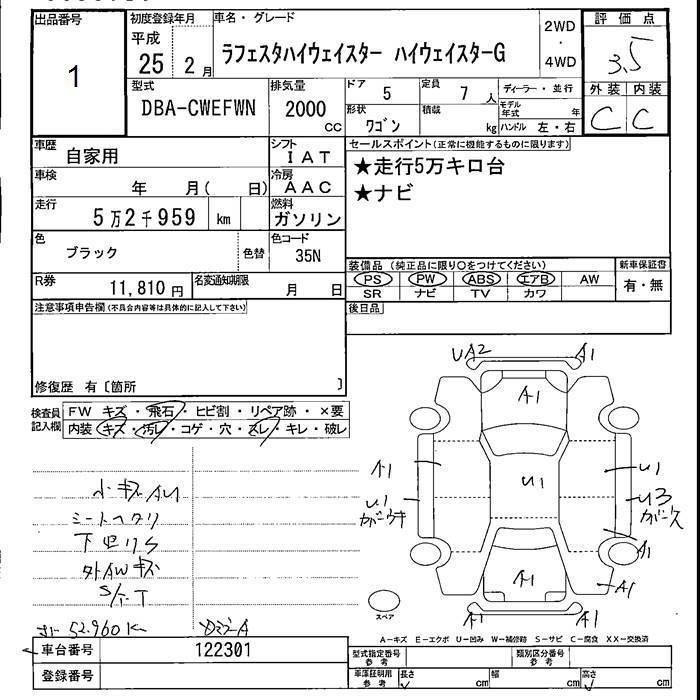 出品番号
1
初度登録年月
平成
25 2月
車名・グレード
ラフェスタハイウェイスター ハイウェイスターG
2WD
・
4WD
評価点
3.5
外装 内装
C C
型式
DBA-CWEFWN
排気量
2000
CC
ドア 5
定員 7 人
形状 ワゴン
積載 kg
ディーラー・並行
モデル年式 年
ハンドル 左・右
車歴 自家用
シフト
IAT
車検 年 月( 日)
冷房
AAC
走行 5万2千959 km
燃料
ガソリン
色 ブラック
色替
色コード
35N
R券 11,810円
名変通知期限 月 日
セールスポイント(正常に機能するものに限ります)
★走行5万キロ台
★ナビ
装備品 (純正品に限り○をつけてください)
PS PW ABS エアB AW
SR ナビ TV カワ
新車保証書
有・無
後日品
注意事項申告欄(不具合内容等は具体的に記入して下さい)
修復歴 有〔箇所 〕
検査員
記入欄
FW キズ・飛石・ヒビ割・リペア跡・×要
内装 キズ・汚レ・コゲ・穴・スレ・キレ・破レ
小キズAU
シートヘタリ
下廻りS
外AWキズ
S/T T
52.960K
UA2
A1
A1
A1
U1
U1
U1
カバーウキ
U3
カバー欠
A1
A1
A1
A1
A1
スペア
A-キズ E-エクボ U-凹み W-補修跡 S-サビ C-腐食 XX-交換済
車台番号 122301
登録番号
型式指定番号
参考
類別区分番号
参考
車庫証明用
参考
長さ cm
幅 cm
高さ cm